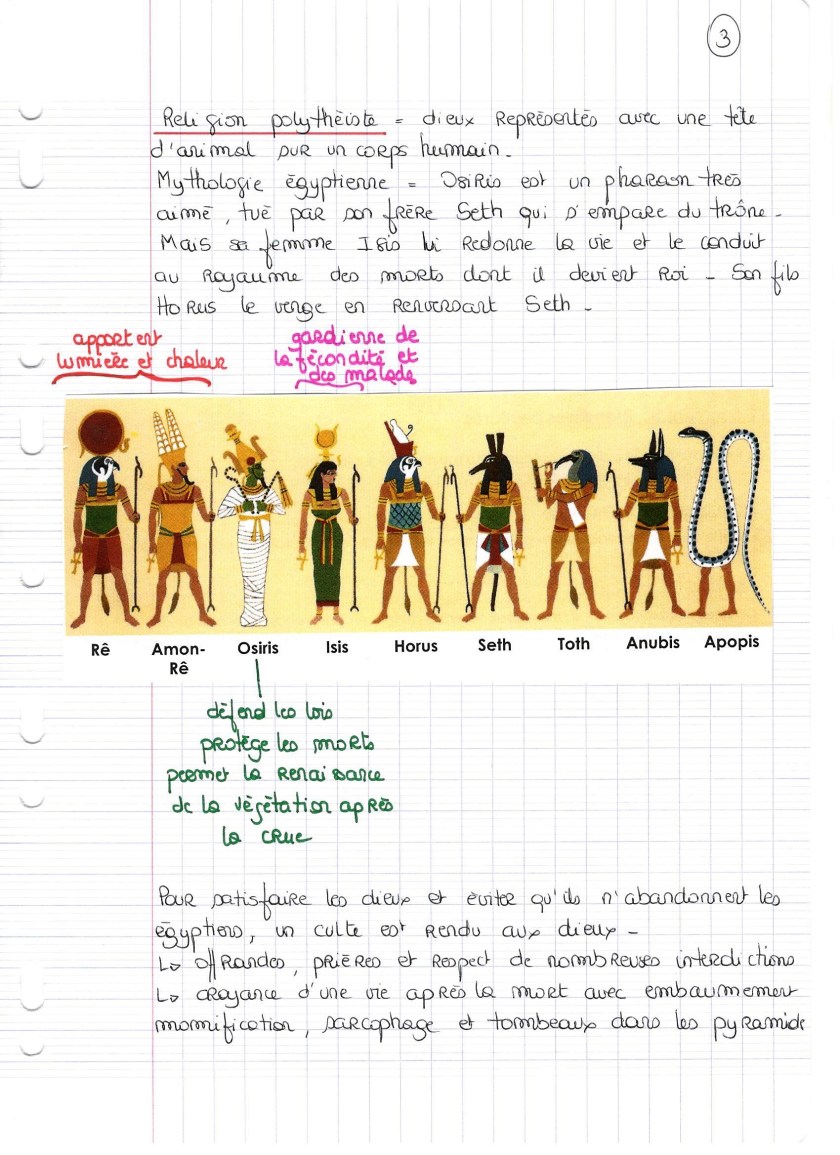 3
Religion polythéiste = dieux représentés avec une tête
d'animal sur un corps humain.
Mythologie égyptienne = Osiris est un pharaon très
aimé, tué par son frère Seth qui s'empare du trône.
Mais sa femme Isis lui redonne la vie et le conduit
au Royaume des morts dont il devient Roi - Son fils
Horus le venge en renversant Seth.
apportent
lumière et chaleur
gardienne de
la fécondité et
des malade
Rê
Amon-
Rê
Osiris
Isis
Horus
Seth
Toth
Anubis
Apopis
défend les lois
protège les morts
permet la renaissance
de la végétation après
la crue
Pour satisfaire les dieux et éviter qu'ils n'abandonnent les
égyptiens, un culte est rendu aux dieux -
↳ offrandes, prières et respect de nombreuses interdictions
↳ croyance d'une vie après la mort avec embaumement
momification, sarcophage et tombeaux dans les pyramide